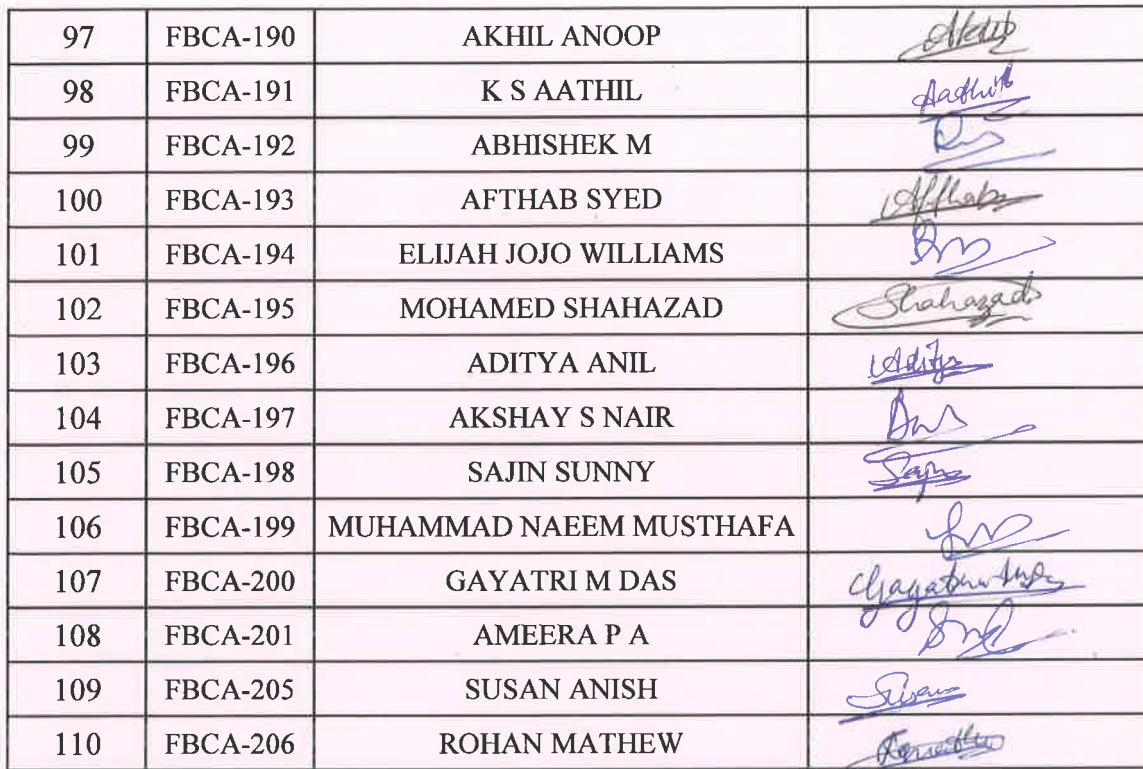 97 FBCA-190 AKHIL ANOOP Akhil
98 FBCA-191 K S AATHIL Aathil
99 FBCA-192 ABHISHEK M
100 FBCA-193 AFTHAB SYED Afthab
101 FBCA-194 ELIJAH JOJO WILLIAMS
102 FBCA-195 MOHAMED SHAHAZAD Shahazad
103 FBCA-196 ADITYA ANIL Aditya
104 FBCA-197 AKSHAY S NAIR
105 FBCA-198 SAJIN SUNNY
106 FBCA-199 MUHAMMAD NAEEM MUSTHAFA
107 FBCA-200 GAYATRI M DAS
108 FBCA-201 AMEERA P A
109 FBCA-205 SUSAN ANISH Susan
110 FBCA-206 ROHAN MATHEW